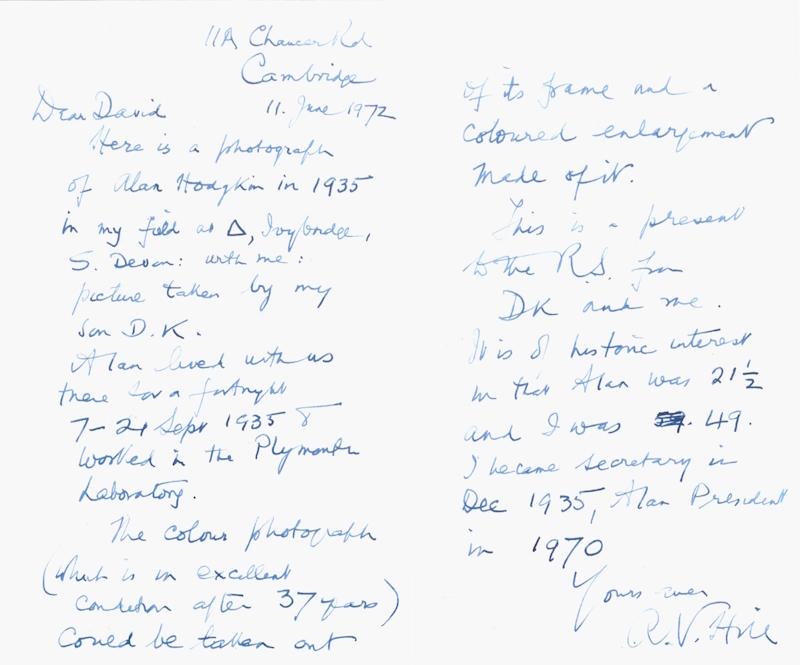 11A Chaucer Rd
Cambridge
Dear David 11. June 1972
Here is a photograph
of Alan Hodgkin in 1935
in my field at Δ, Ivybridge,
S. Devon: with me:
picture taken by my
son D.K.
Alan lived with us
there for a fortnight
7-21 Sept 1935 &
worked in the Plymouth
Laboratory.
The colour photograph
(which is in excellent
condition after 37 years)
could be taken out
of its frame and a
coloured enlargement
made of it.
This is a present
to the R.S. from
DK and me.
It is of historic interest
in that Alan was 21½
and I was 49.
I became secretary in
Dec 1935, Alan President
in 1970
Yours ever